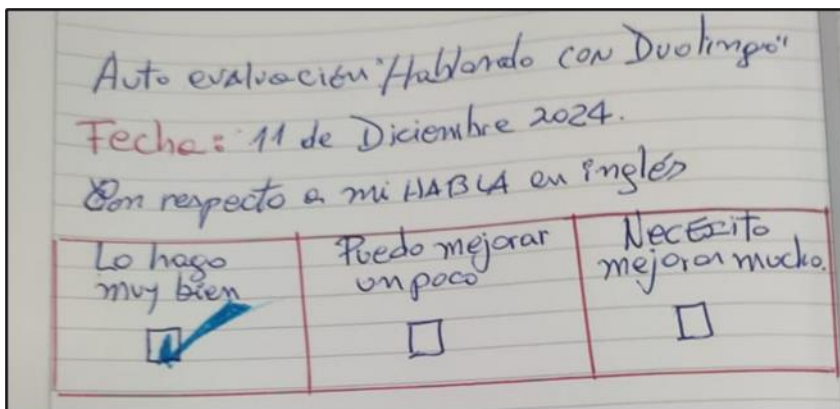 Auto evaluación "Hablando con Duolingo"
Fecha: 11 de Diciembre 2024.
Con respecto a mi HABLA en inglés
Lo hago
muy bien
Puedo mejorar
un poco
Necesito
mejorar mucho.